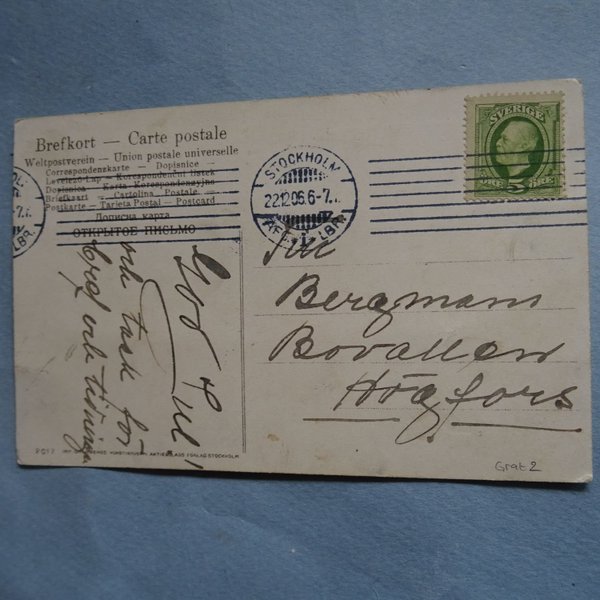 Brefkort — Carte postale
Weltpostverein – Union postale universelle
Correspondenzkarte – Dopisnice –
Levelező-Lap – Korespondenční listek
Dopisnica – Karta Korespondencyjna
Briefkaart – Cartolina Postale –
Postkarte – Tarjeta Postal – Postcard
Дописна карта
ОТКРЫТОЕ ПИСЬМО
STOCKHOLM
22.12.06.6-7
1 LBR.
SVERIGE
ÖRE 5 ÖRE
God Jul!
och tack för
bref och tidning
Till
Bergmans
Bovallen
Högfors
2017
AKTIEBOLAGS FÖRLAG STOCKHOLM
Grat 2